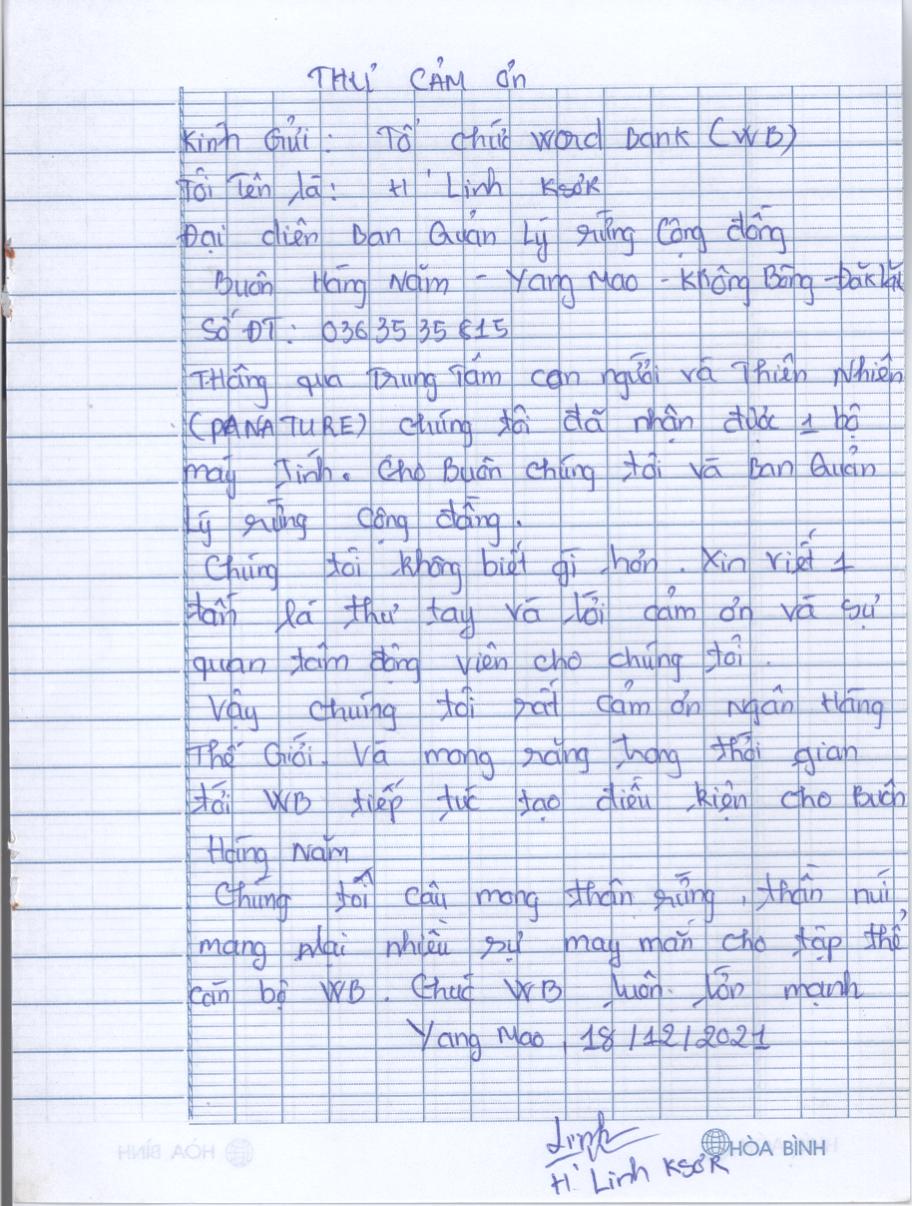 THƯ CẢM ƠN
Kính Gửi: Tổ chức Word Bank (WB)
Tôi Tên là: H' Linh KSƠR
Đại diện Ban Quản Lý rừng Cộng đồng
Buôn Hàng Năm - Yang Mao - Krông Bông - Đăk Lăk
Số ĐT: 036 35 35 615
Thông qua Trung Tâm con người và Thiên Nhiên
(PANATURE) chúng tôi đã nhận được 1 bộ
máy Tính. Cho Buôn chúng tôi và Ban Quản
Lý rừng cộng đồng.
Chúng tôi không biết gì hơn. Xin viết 1
tấm lá thư tay và lời cảm ơn và sự
quan tâm động viên cho chúng tôi.
Vậy chúng tôi rất cảm ơn Ngân Hàng
Thế Giới. Và mong rằng trong thời gian
tới WB tiếp tục tạo điều kiện cho Buôn
Hàng Năm
Chúng tôi cầu mong thần rừng, thần núi
mang lại nhiều sự may mắn cho tập thể
cán bộ WB. Chúc WB luôn lớn mạnh
Yang Mao, 18/12/2021
Linh
H' Linh KSƠR
HÒA BÌNH